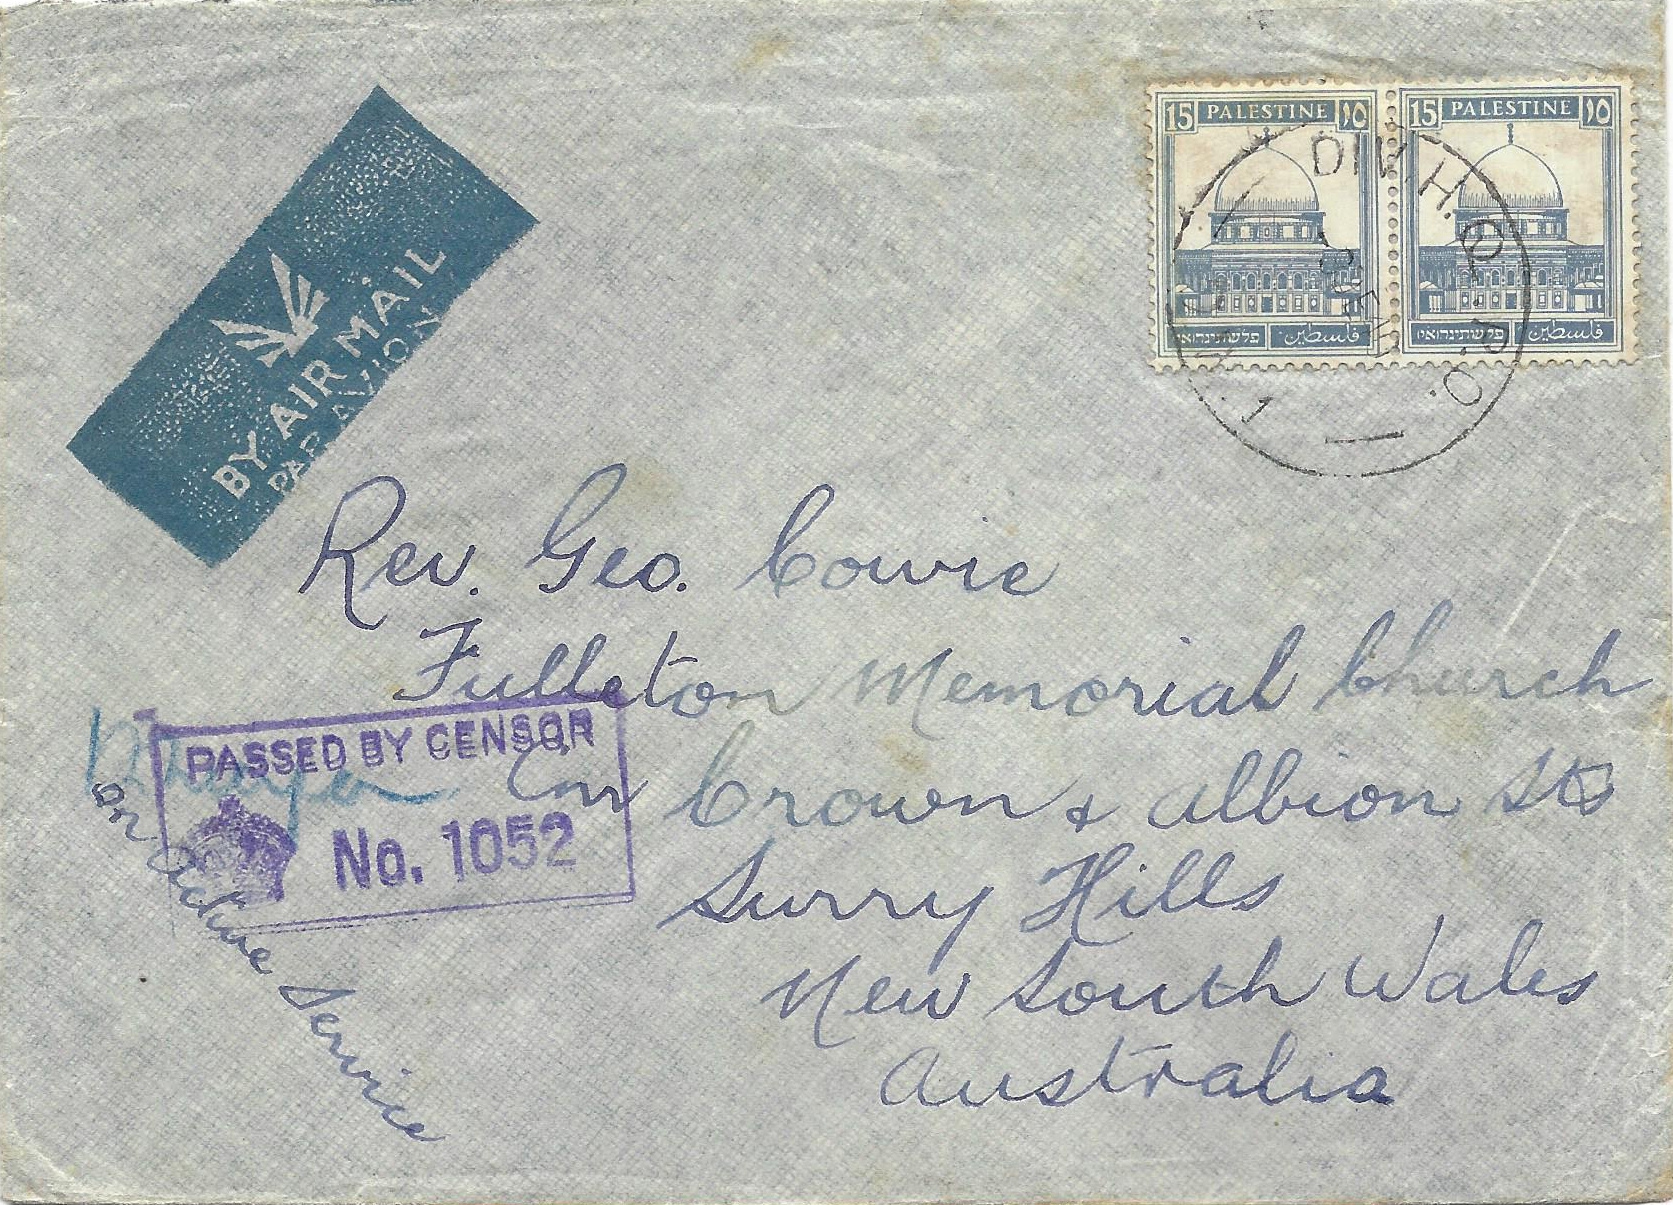 BY AIR MAIL
PAR AVION
15 PALESTINE ١٥
فلسطين פלשתינה־א״י
15 PALESTINE ١٥
فلسطين פלשתינה־א״י
DIV. H.Q. P.O.
1
Rev. Geo. Cowie
Fulleton Memorial Church
Cnr Crown & Albion Sts
Surry Hills
New South Wales
Australia
PASSED BY CENSOR
No. 1052
On Active Service